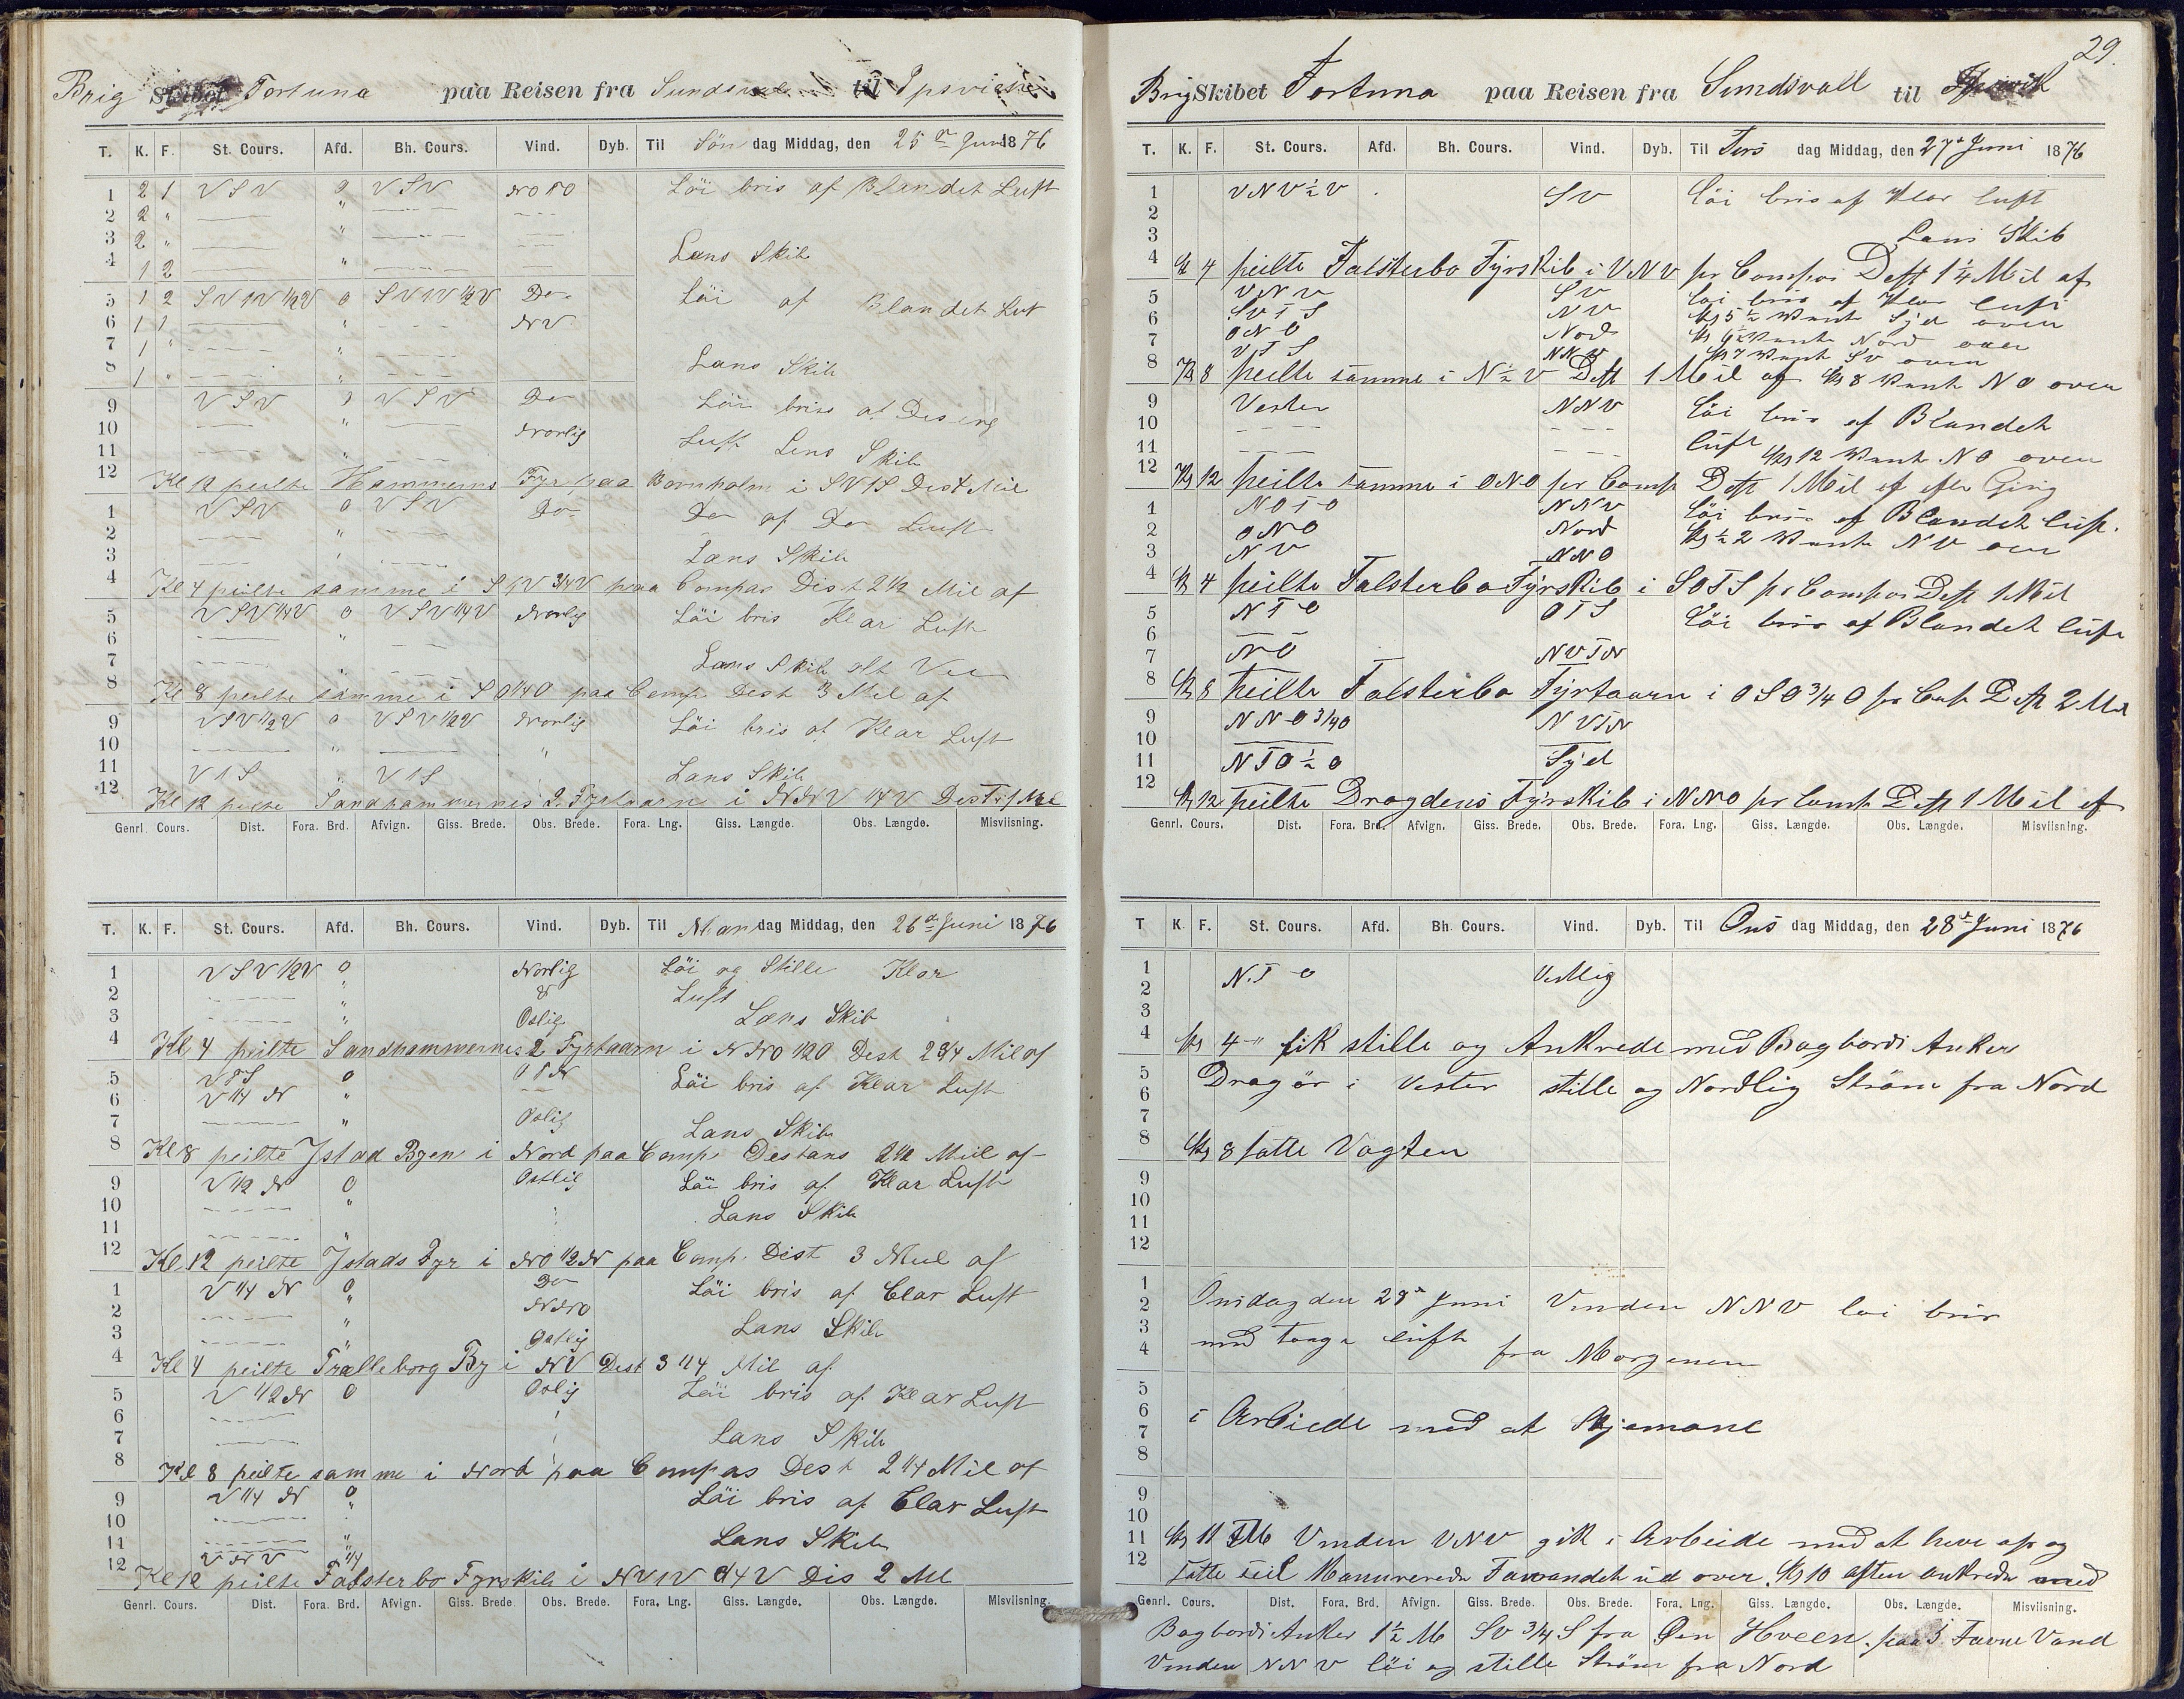 Brig Skibet Fortuna paa Reisen fra Sundsvall til Ipsvich
T. K. F. St. Cours. Afd. Bh. Cours. Vind. Dyb. Til Søn dag Middag, den 25de Juni 1876
1 2 1 VSV 0 VSV NOTO Löi bris af Blandet Luft
2 2 "
3 2 "
4 1 2 " Lens Skib
5 1 2 SVTV 1/2V 0 SVTV 1/2V Do Löi af Blandet Luft
6 1 1 " NV
7 1 " "
8 1 " " Lans Skib
9 VSV 0 VSV Do Löi bris af Diseng
10 " Norlig Luft Lens Skib
11
12 Kl 12 peilte Hammerns Fyr paa Bornholm i SVTS Dist Mil
1 VSV 0 VSV Do Do af Do Luft
2 "
3 " Lans Skib
4 Kl 4 peilte samme i STV 3/4V paa Compas Dist 2 1/2 Mil af
5 VSV 1/4V 0 VSV 1/4V Norlig Löi bris Klar Luft
6 "
7 " Lans Skib alt Vel
8 Kl 8 peilte samme i SO 1/4O paa Comp. Dest 3 Mil af
9 VSV 1/2V 0 VSV 1/2V Norlig Löi bris af Klar Luft
10 " "
11 VTS " VTS Lans Skib
12 Kl 12 peilte Sandhammernes 2 Fyrtaarn i NNV 1/4V Dest Mil
Genrl. Cours. Dist. Fora. Brd. Afvign. Giss. Brede. Obs. Brede. Fora. Lng. Giss. Længde. Obs. Længde. Misviisning.
T. K. F. St. Cours. Afd. Bh. Cours. Vind. Dyb. Til Man dag Middag, den 26de Juni 1876
1 VSV 1/2V 0 Norlig Löi og Stille Klar
2 " & Luft
3 " Oslig Lens Skib
4 Kl 4 peilte Sandhammernes 2 Fyrtaarn i NNO 1/2O Dest 2 3/4 Mil af
5 VTS 0 OTN Löi bris af Klar Luft
6 V 1/4 N "
7 " Oslig Lans Skib
8 Kl 8 peilte Jstad Byen i Nord paa Comp. Destans 2 1/2 Mil af
9 V 1/2 N 0 Ostlig Löi bris af Klar Luft
10 " Lans Skib
11 "
12 Kl 12 peilte Jstads Fyr i NO 1/2 N paa Comp. Dist 3 Mil af
1 V 1/4 N 0 Do Löi bris af Clar Luft
2 " NNO
3 " Ostlig Lans Skib
4 Kl 4 peilte Tralleborg By i NV Dest 3 1/4 Mil af
5 V 1/2 N 0 Oslig Löi bris af Klar Luft
6
7 Lans Skib
8 Kl 8 peilte samme i Nord paa Compas Dest 2 1/4 Mil af
9 V 1/4 N 0 Löi bris af Clar Luft
10 "
11 " Lans Skib
12 VNV 1/4
Kl 12 peilte Falsterbo Fyrskib i NVTV 1/4 V Dis 2 Ml
Genrl. Cours. Dist. Fora. Brd. Afvign. Giss. Brede. Obs. Brede. Fora. Lng. Giss. Længde. Obs. Længde. Misviisning.
29.
Brig Skibet Fortuna paa Reisen fra Sundsvall til
T. K. F. St. Cours. Afd. Bh. Cours. Vind. Dyb. Til Tirs dag Middag, den 27de Juni 1876
1 VNV 1/2 V SV löi bris af Klar luft
2
3 Lans Skib
4 Kl 4 peilte Falsterbo Fyrskib i VNV pr Compas Dest 1 1/4 Mil af
5 VNV SV löi bris af Klar luft
6 SVTS NV Kl 5 1/2 Vente Syd over
7 ONO Nord Kl 6 1/2 Vente Nord over
8 VTS NNV Kl 7 Vente SV over
Kl 8 peilte samme i N 1/2 V Dest 1 Mil af Kl 8 Vente NO over
9 Vester NNV Löi bris af Blandet
10
11 luft Kl 12 Vente NO over
12 Kl 12 peilte samme i ONO pr Comp Dest 1 Mil af efter Gisg
1 NOTO NNV Löi bris af Blandet luft.
2 ONO Nord Kl 1/2 2 Vente NV over
3 NV NNO
4 Kl 4 peilte Falsterbo Fyrskib i SOTS pr Compas Dest 1 Mil
5 NTO OTS Löi bris af Blandet luft
6
7 NO NVTN
8 Kl 8 peilte Falsterbo Fyrtaarn i OSO 3/4 O pr Comp Dest 2 Mil
9 NNO 3/4O NVTN
10
11 NTO 1/2 O Syd
12 Kl 12 peilte Dragdens Fyrskib i NNO pr Comp Dest 1 Mil af
Genrl. Cours. Dist. Fora. Brd. Afvign. Giss. Brede. Obs. Brede. Fora. Lng. Giss. Længde. Obs. Længde. Misviisning.
T K. F. St. Cours. Afd. Bh. Cours. Vind. Dyb. Til Ons dag Middag, den 28de Juni 1876
1 NTO Vestlig
2
3
4 Kl 4 fik stille og Ankrede med Bagbords Anker
5 Dragör i Vester stille og Nordlig Ström fra Nord
6
7
8 Kl 8 satte Vagten
9
10
11
12
1 Onsdag den 28de Juni Vinden NNV löi bris
2
3 med luft fra Morgenen
4
5
6 i Arbeide med at
7
8
9
10
11 Kl 11 FM Vinden VNV gik i Arbeide med at hive op og
12 satte seil Manurerede Farvandet ud over. Kl 10 aften ankrede med
Genrl. Cours. Dist. Fora. Brd. Afvign. Giss. Brede. Obs. Brede. Fora. Lng. Giss. Længde. Obs. Længde. Misviisning.
Bagbords Anker 1 1/2 M SV 3/4 S fra Øen Hveen. paa Favne Vand
Vinden NNV löi og stille Ström fra Nord